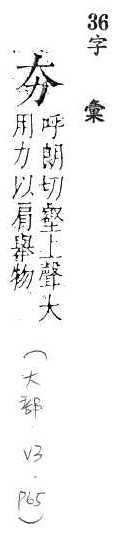 36
字彙
夯
呼朗切壑上聲大
用力以肩舉物
(大部 V3.P65)